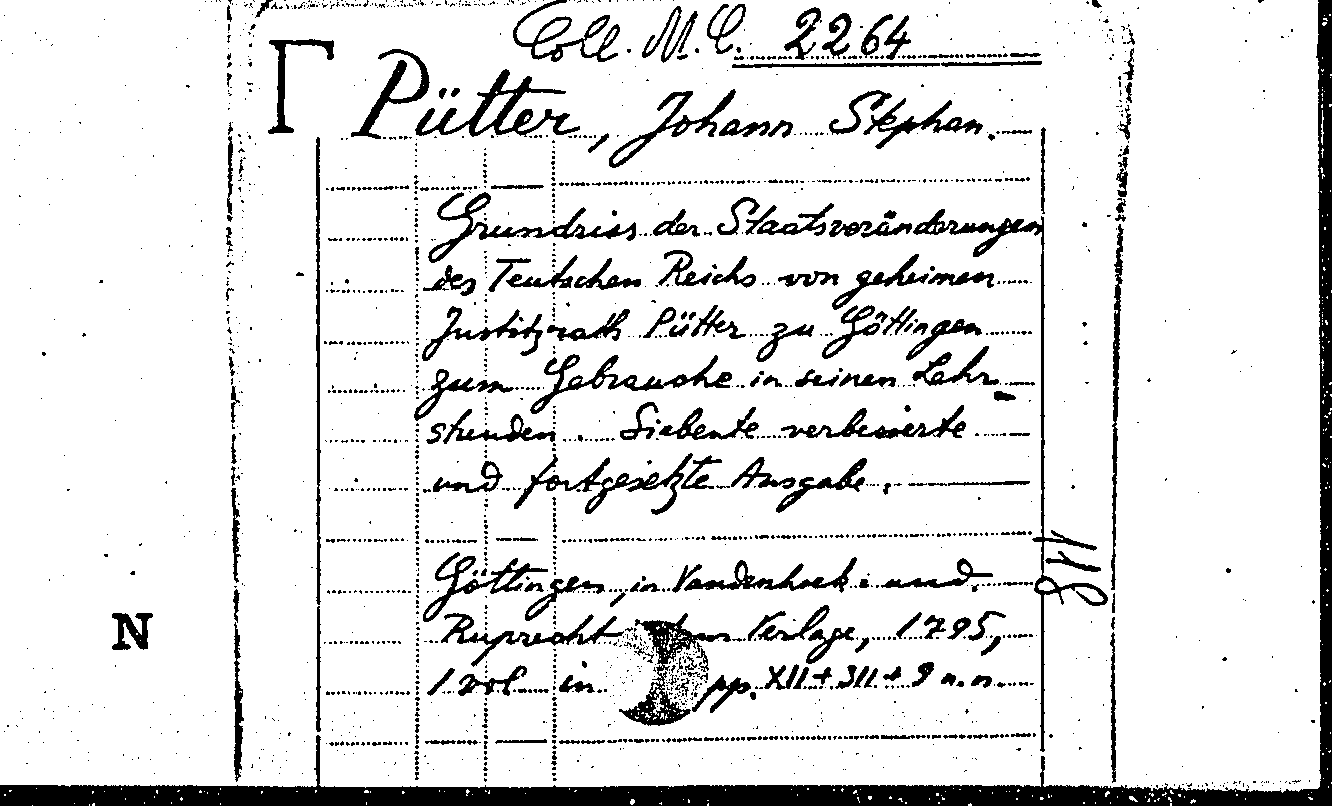 Coll. M. C. 2264
Pütter, Johann Stephan.
Grundriss der Staatsveränderungen
des Teutschen Reichs von geheimen
Justitzrath Pütter zu Göttingen
zum Gebrauche in seinen Lehr-
stunden. Siebente verbesserte
und fortgesetzte Ausgabe.
Göttingen, in Vandenhoek: und
Ruprecht Verlage, 1795,
1 vol in pp. XII + 311 + 9 n.n.
N